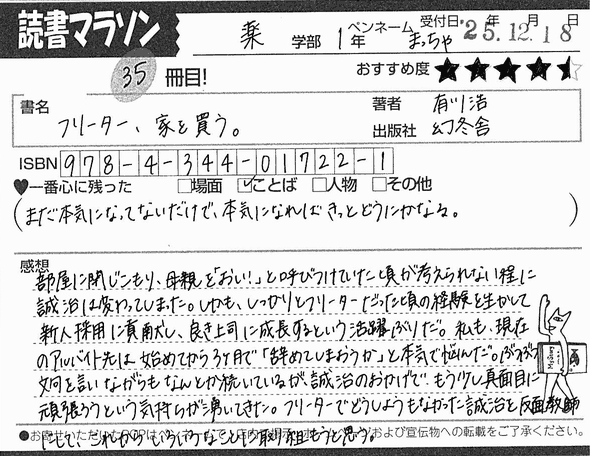 読書マラソン
薬 学部 1年 ペンネーム まっちゃ 受付日・25年12月18日
35冊目! おすすめ度 ★★★★
書名 フリーター、家を買う。
著者 有川浩
出版社 幻冬舎
ISBN 978-4-344-01722-1
♥一番心に残った □場面 ☑ことば □人物 □その他
(まだ本気になってないだけで、本気になればきっとどうにかなる。)
感想
部屋に閉じこもり、母親を「おい!」と呼びつけていた頃が考えられない程に
誠治は変わってしまった。しかも、しっかりとフリーターだった頃の経験を生かして
新人採用に貢献し、良き上司に成長するという活躍ぶりだ。私も、現在
のアルバイト先は始めてから3ヶ月で「辞めてしまおうか」と本気で悩んだ。ぶつぶつ
文句を言いながらもなんとか続いているが、誠治のおかげで もう少し真面目に
頑張ろうという気持ちが湧いてきた。フリーターでどうしようもなかった誠治を反面教師
にして、これからいろいろなことに取り組もうと思う。
●お寄せいただいたPOPはペンネームで店内掲示および宣伝物への転載をご了承ください。